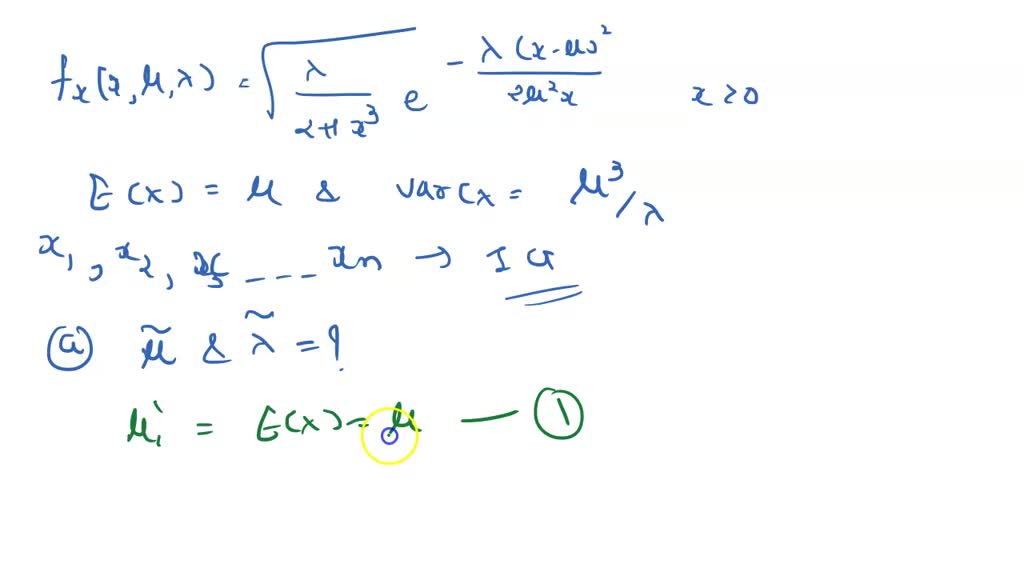 fx(x, μ, λ) = √(λ / 2π x³) e^(- λ(x-μ)² / 2μ²x) x≥0
E(x) = μ & var(x = μ³/λ
x₁, x₂, x₃ --- xn → IG
(a) μ̃ & λ̃ = ?
μ₁' = E(x) = μ — (1)